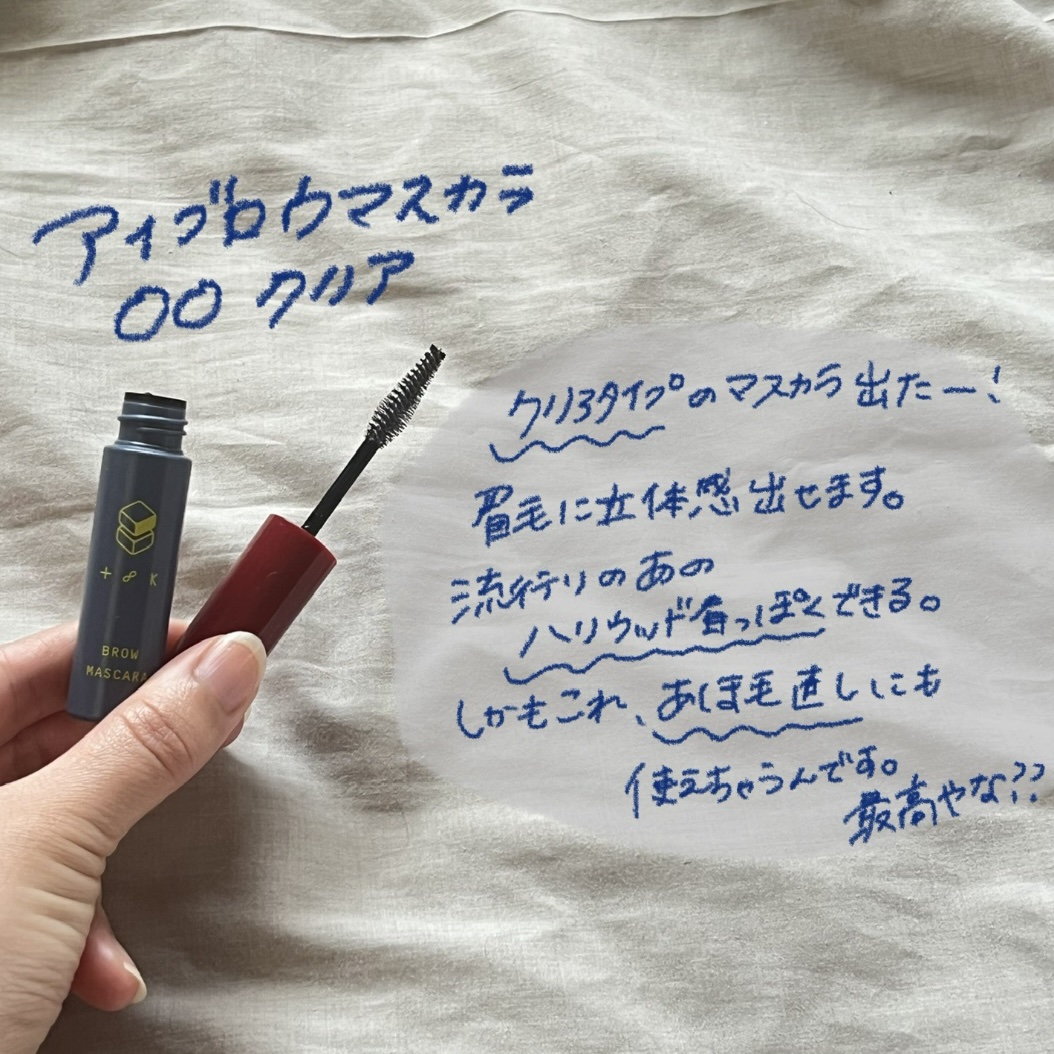 アイブロウマスカラ
00 クリア
クリアタイプのマスカラ出たー!
眉毛に立体感出せます。
流行りのあの
ハリウッド眉っぽくできる。
しかもこれ、あほ毛直しにも
使えちゃうんです。
最高やな??
+ ∞ K
BROW
MASCARA